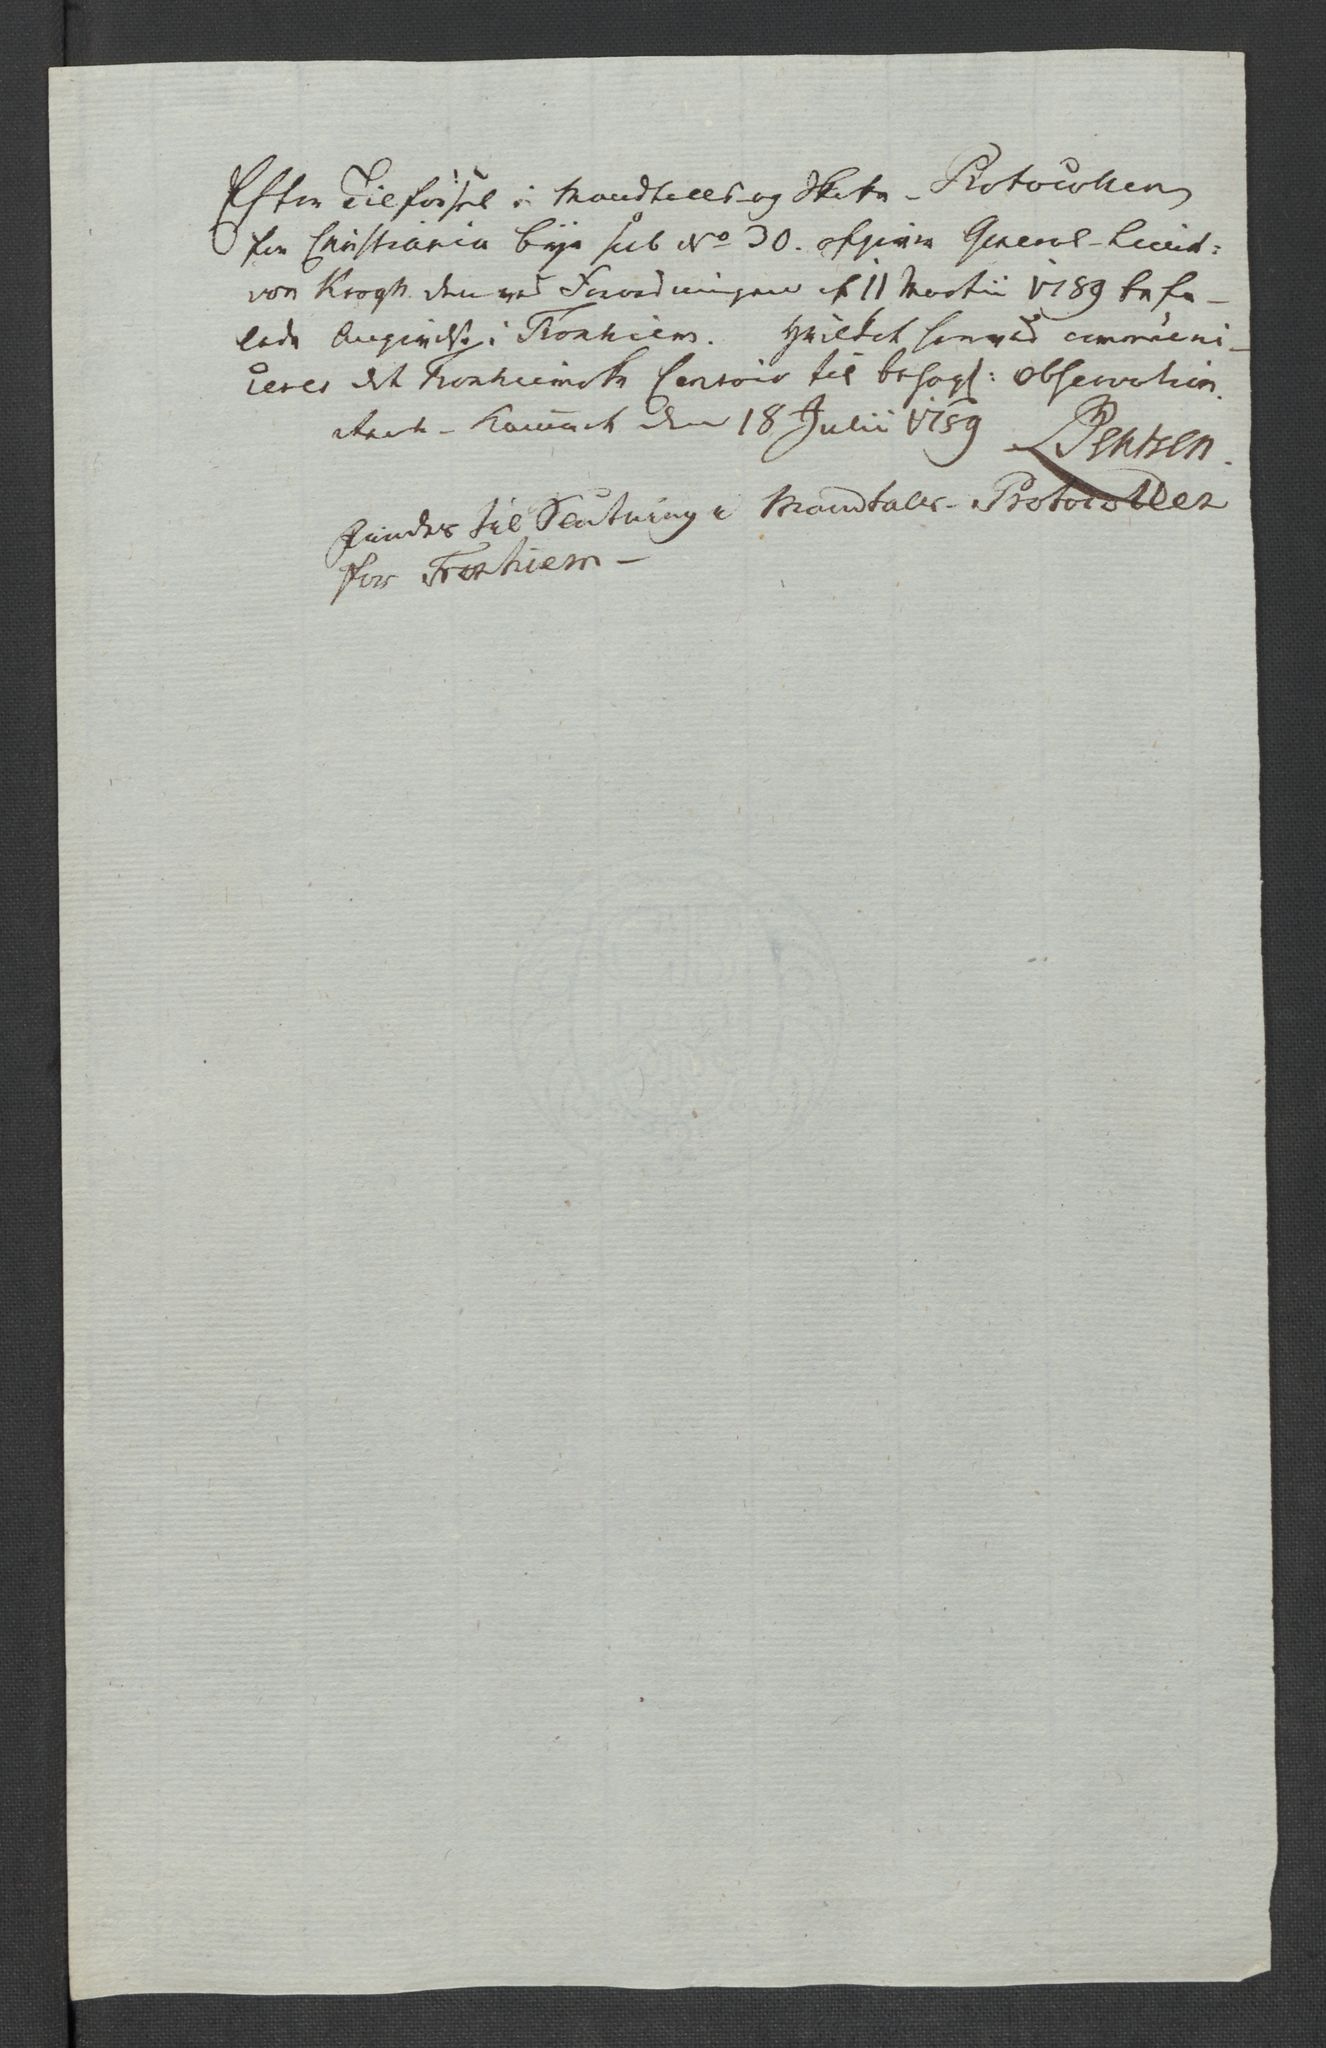 Efter Tilførsel i Mandtalls og Skatte-Protocollen
for Christiania Bye sub No 30. afgiver General-Lieut:
von Krogh den ved Forordningen af 11 Martii 1789 befa-
lede Angivelse i Tronhiem. Hvilket herved communi-
ceres det Tronhiemske Contoir til behagl: observation.
Skatte-Kammeret den 18 Julii 1789 Bentsen.
findes til Slutning i Mandtalls-Protocollen
for Tronhiem-